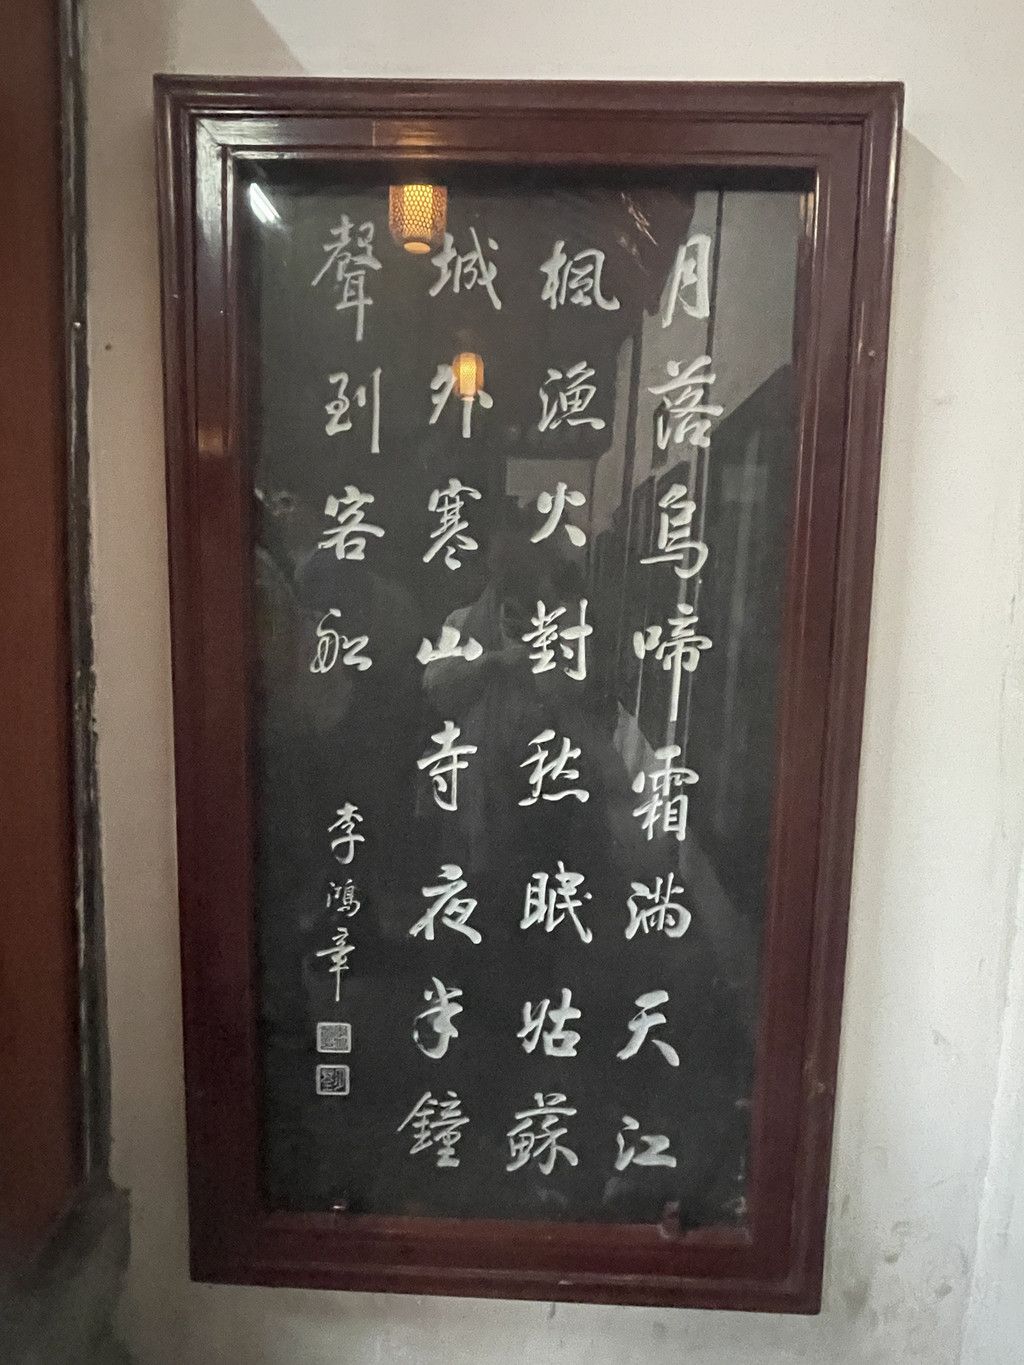 月落烏啼霜滿天江
楓漁火對愁眠姑蘇
城外寒山寺夜半鐘
聲到客船
李鴻章